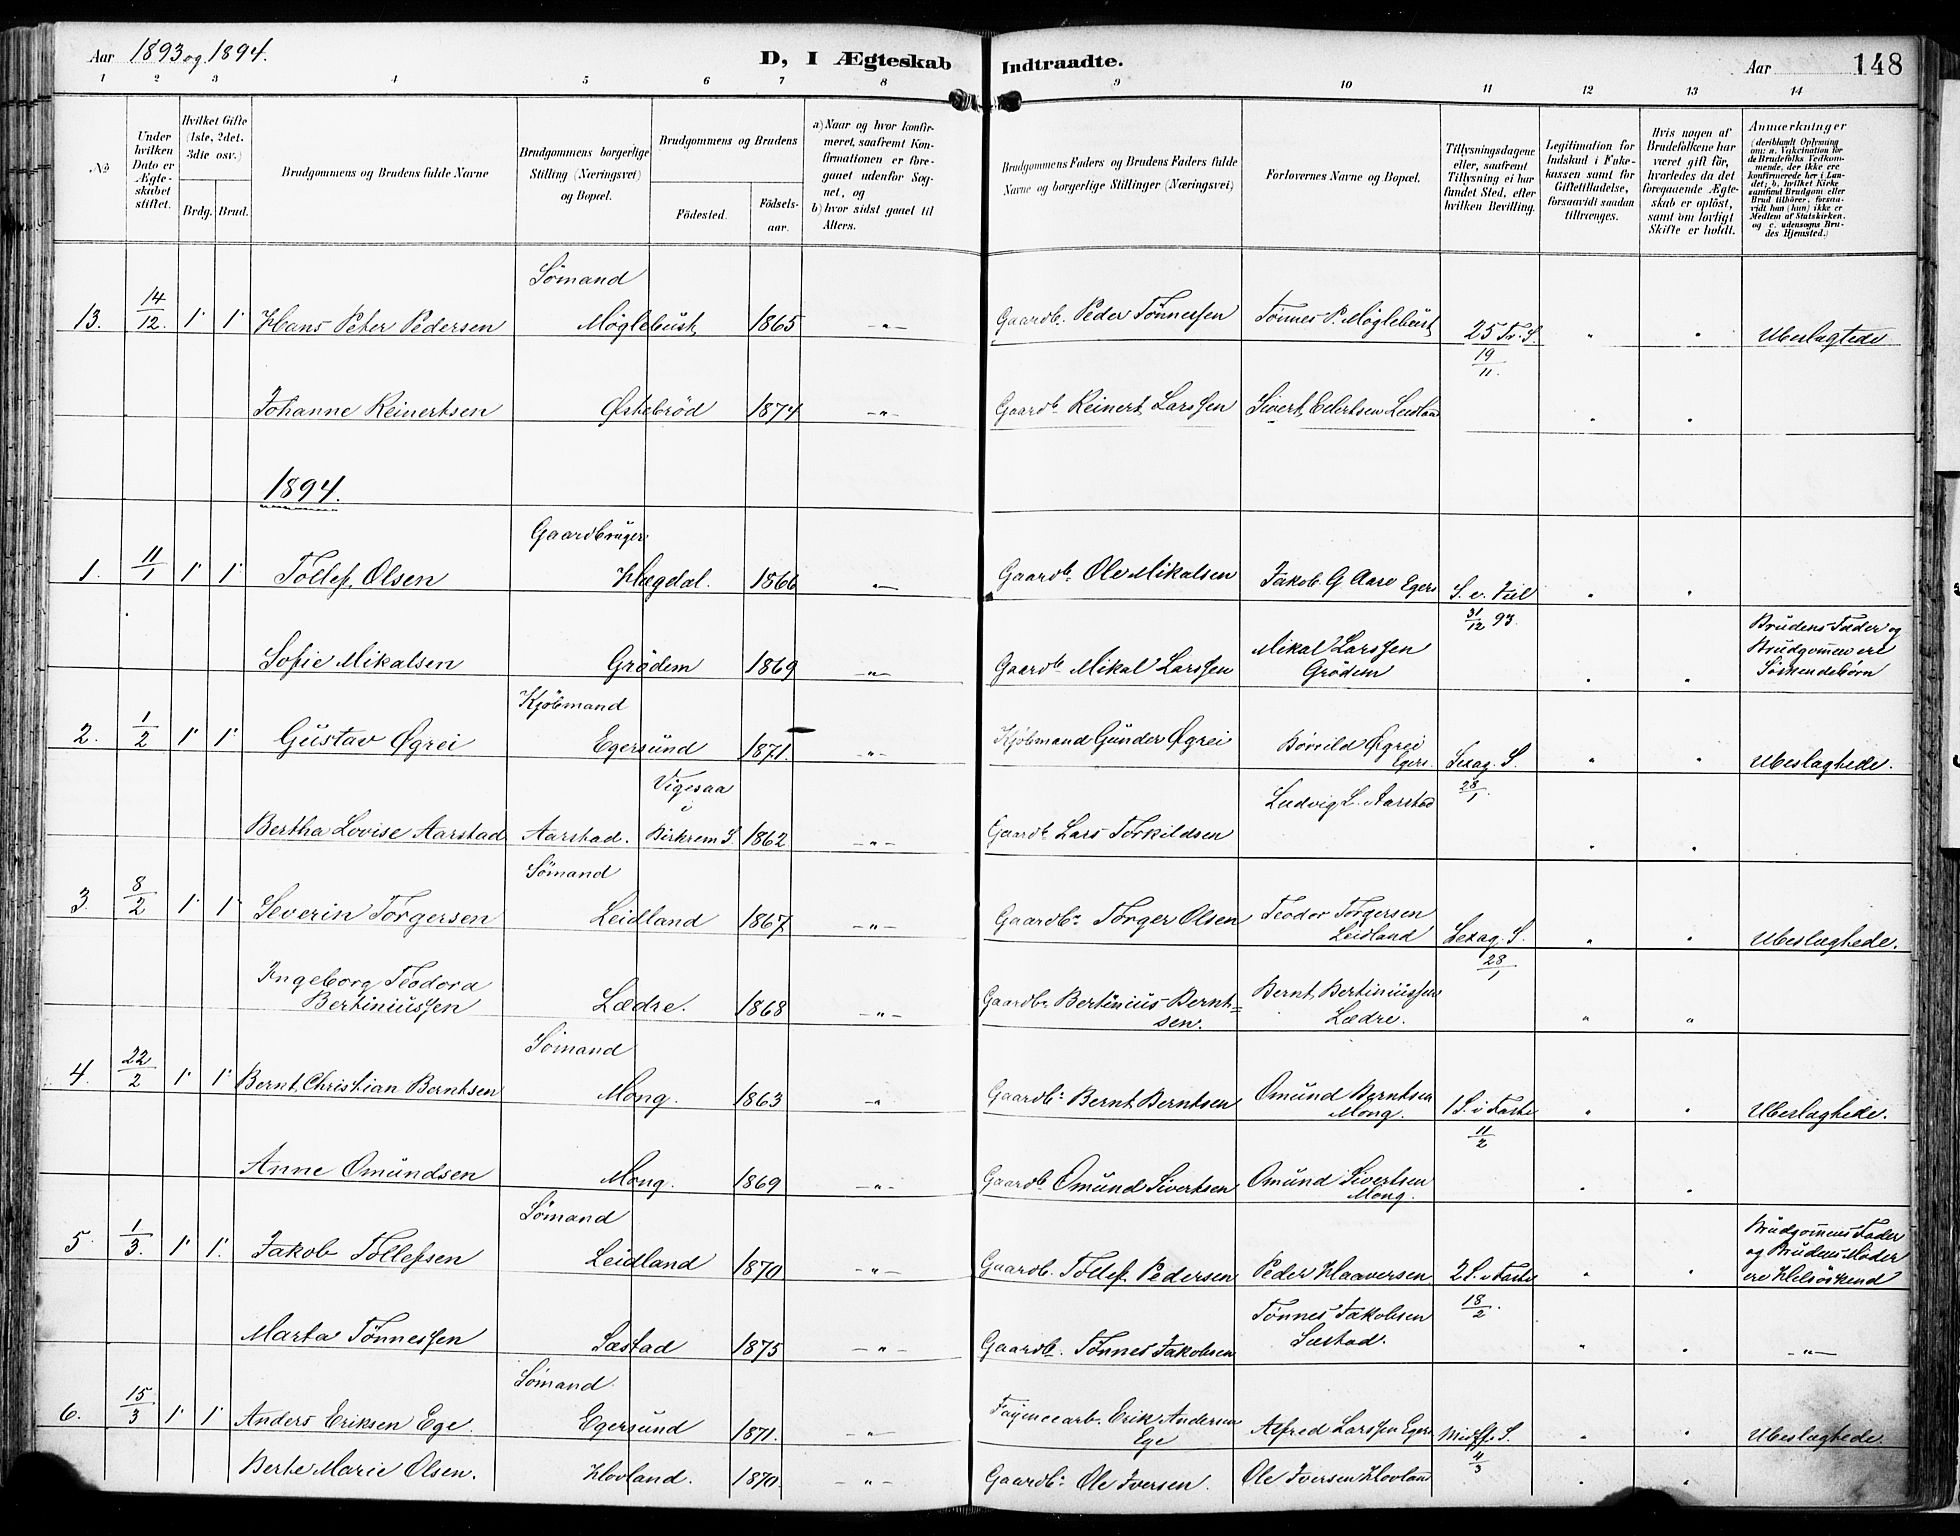 Aar 1893 og 1894.
D, I Ægteskab Indtraadte.
Aar 148
1 2 3 4 5 6 7 8 9 10 11 12 13 14
No
Under hvilken Dato er Ægteskabet stiftet.
Hvilket Gifte (1ste, 2det, 3die osv.)
Brdg. Brud.
Brudgommens og Brudens fulde Navne
Brudgommens borgerlige Stilling (Næringsvei) og Bopæl.
Brudgommens og Brudens
Födested.
Födsels-aar.
a) Naar og hvor konfirmeret, saafremt Konfirmationen er foregaaet udenfor Sognet, og
b) hvor sidst gaaet til Alters.
Brudgommens Faders og Brudens Faders fulde Navne og borgerlige Stillinger (Næringsvei)
Forlovernes Navne og Bopæl.
Tillysningsdagene eller, saafremt Tillysning ei har fundet Sted, efter hvilken Bevilling.
Legitimation for Indskud i Enkekassen samt for Giftetilladelse, forsaavidt saadan tiltrænges.
Hvis nogen af Brudefolkene har været gift för, hvorledes da det foregaaende Ægteskab er oplöst, samt om lovligt Skifte er holdt.
Anmærkninger (deriblandt Oplysning om: a. Vakcination for de Brudefolks Vedkommende, der ikke ere konfirmerede her i Landet; b. hvilket Kirkesamfund Brudgom eller Brud tilhörer, forsaavidt han (hun) ikke er Medlem af Statskirken, og c. udensogns Brudes Hjemsted.)
Sømand
13. 14/12 1 1 Hans Peter Pedersen Møglebust 1865 -"- Gaardb. Peder Tønnessen Tønnes P. Møglebust 25 Tr. S. 19/11. " " Ubeslagtede
Johanne Reinertsen Østebrød 1874 -"- Gaardb. Reinert Larssen Sivert Edertsen Leidland " "
1894.
Gaardbruger
1. 11/1 1 1 Tollef Olsen Hægdal. 1866 " Gaardb. Ole Mikalsen Jakob G Aase Egers S. e. Juel 31/12 93. " "
Sofie Mikalsen Grödem 1869 -"- Gaardb. Mikal Larssen Mikal Larssen Grödem " " Brudens Fader og Brudgommen ere Söskendebörn
Kjöbmand
2. 1/2 1 1 Gustav Øgrei Egersund 1871. -"- Kjöbmand Gunder Øgrei Börild Øgrei Egers. Sexag. S. 28/1. " " Ubeslæghede.
Bertha Lovise Aarstad Aarstad. Vigesaa i Birkrem S. 1862 -"- Gaardb. Lars Torkildsen Ludvig L. Aarstad " "
Sømand
3. 8/2 1 1 Severin Torgersen Leidland 1867 -"- Gaardb. Torger Olsen Teodor Torgersen Leidland Sexag. S. 28/1 " " Ubeslæghede.
Ingeborg Teodora Bertiniussen Lædre. 1868 -"- Gaardb. Bertinius Berntsen. Bernt Bertiniussen Lædre. " "
Sømand
4. 22/2 1 1 Bernt Christian Berntsen Mong. 1863 -"- Gaardb. Bernt Berntsen Omund Berntsen Mong. 1 S. i Faste 11/2 " " Ubeslæghede.
Anne Omundsen Mong. 1869 -"- Gaardb. Omund Sivertsen Omund Sivertsen Mong. " "
Sømand
5. 1/3. 1 1. Jakob Tollefsen Leidland 1870 -"- Gaardb. Tollef Pedersen Peder Haaversen 2 S. i Faste 18/2. " " Brudgommens Fader og Brudens Moder ere Helsöskend
Marta Tønnessen Sæstad 1875 -"- Gaardb. Tønnes Jakobsen Tønnes Jakobsen Sæstad. " " -"-
Sømand
6. 15/3 1 1 Anders Eriksen Ege. Egersund 1871. -"- Fayencearb. Erik Andersen Ege Alfred Larssen Egers Midf. S. 4/3 " " Ubeslæghede.
Berte Marie Olsen. Hovland. 1870 -"- Gaardb. Ole Iversen. Ole Iversen Hovland " "